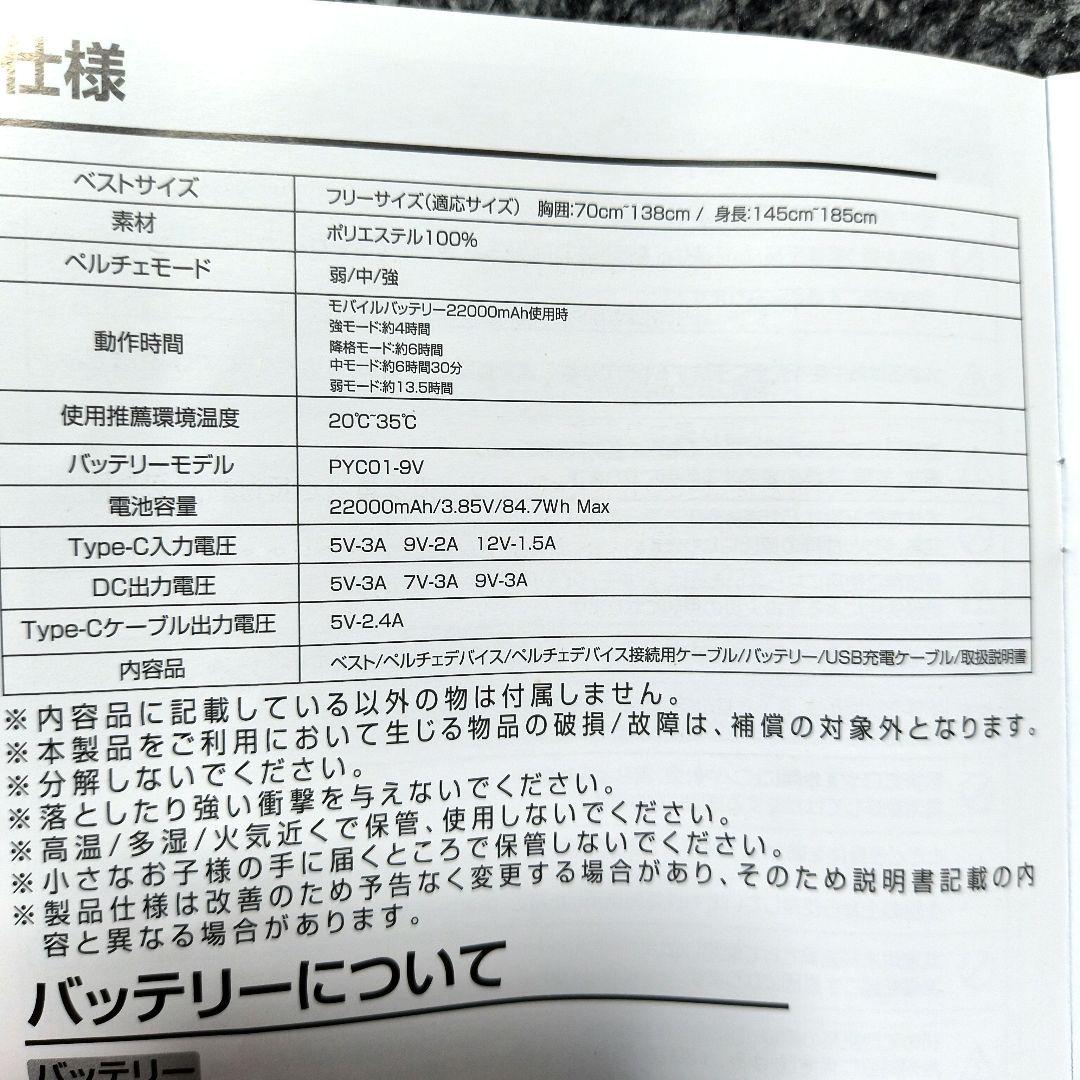 仕様
ベストサイズ フリーサイズ(適応サイズ) 胸囲:70cm~138cm / 身長:145cm~185cm
素材 ポリエステル100%
ペルチェモード 弱/中/強
動作時間 モバイルバッテリー22000mAh使用時
強モード:約4時間
降格モード:約6時間
中モード:約6時間30分
弱モード:約13.5時間
使用推薦環境温度 20℃~35℃
バッテリーモデル PYC01-9V
電池容量 22000mAh/3.85V/84.7Wh Max
Type-C入力電圧 5V-3A 9V-2A 12V-1.5A
DC出力電圧 5V-3A 7V-3A 9V-3A
Type-Cケーブル出力電圧 5V-2.4A
内容品 ベスト/ペルチェデバイス/ペルチェデバイス接続用ケーブル/バッテリー/USB充電ケーブル/取扱説明書
※内容品に記載している以外の物は付属しません。
※本製品をご利用において生じる物品の破損/故障は、補償の対象外となります。
※分解しないでください。
※落としたり強い衝撃を与えないでください。
※高温/多湿/火気近くで保管、使用しないでください。
※小さなお子様の手に届くところで保管しないでください。
※製品仕様は改善のため予告なく変更する場合があり、そのため説明書記載の内
容と異なる場合があります。
バッテリーについて
バッテリー